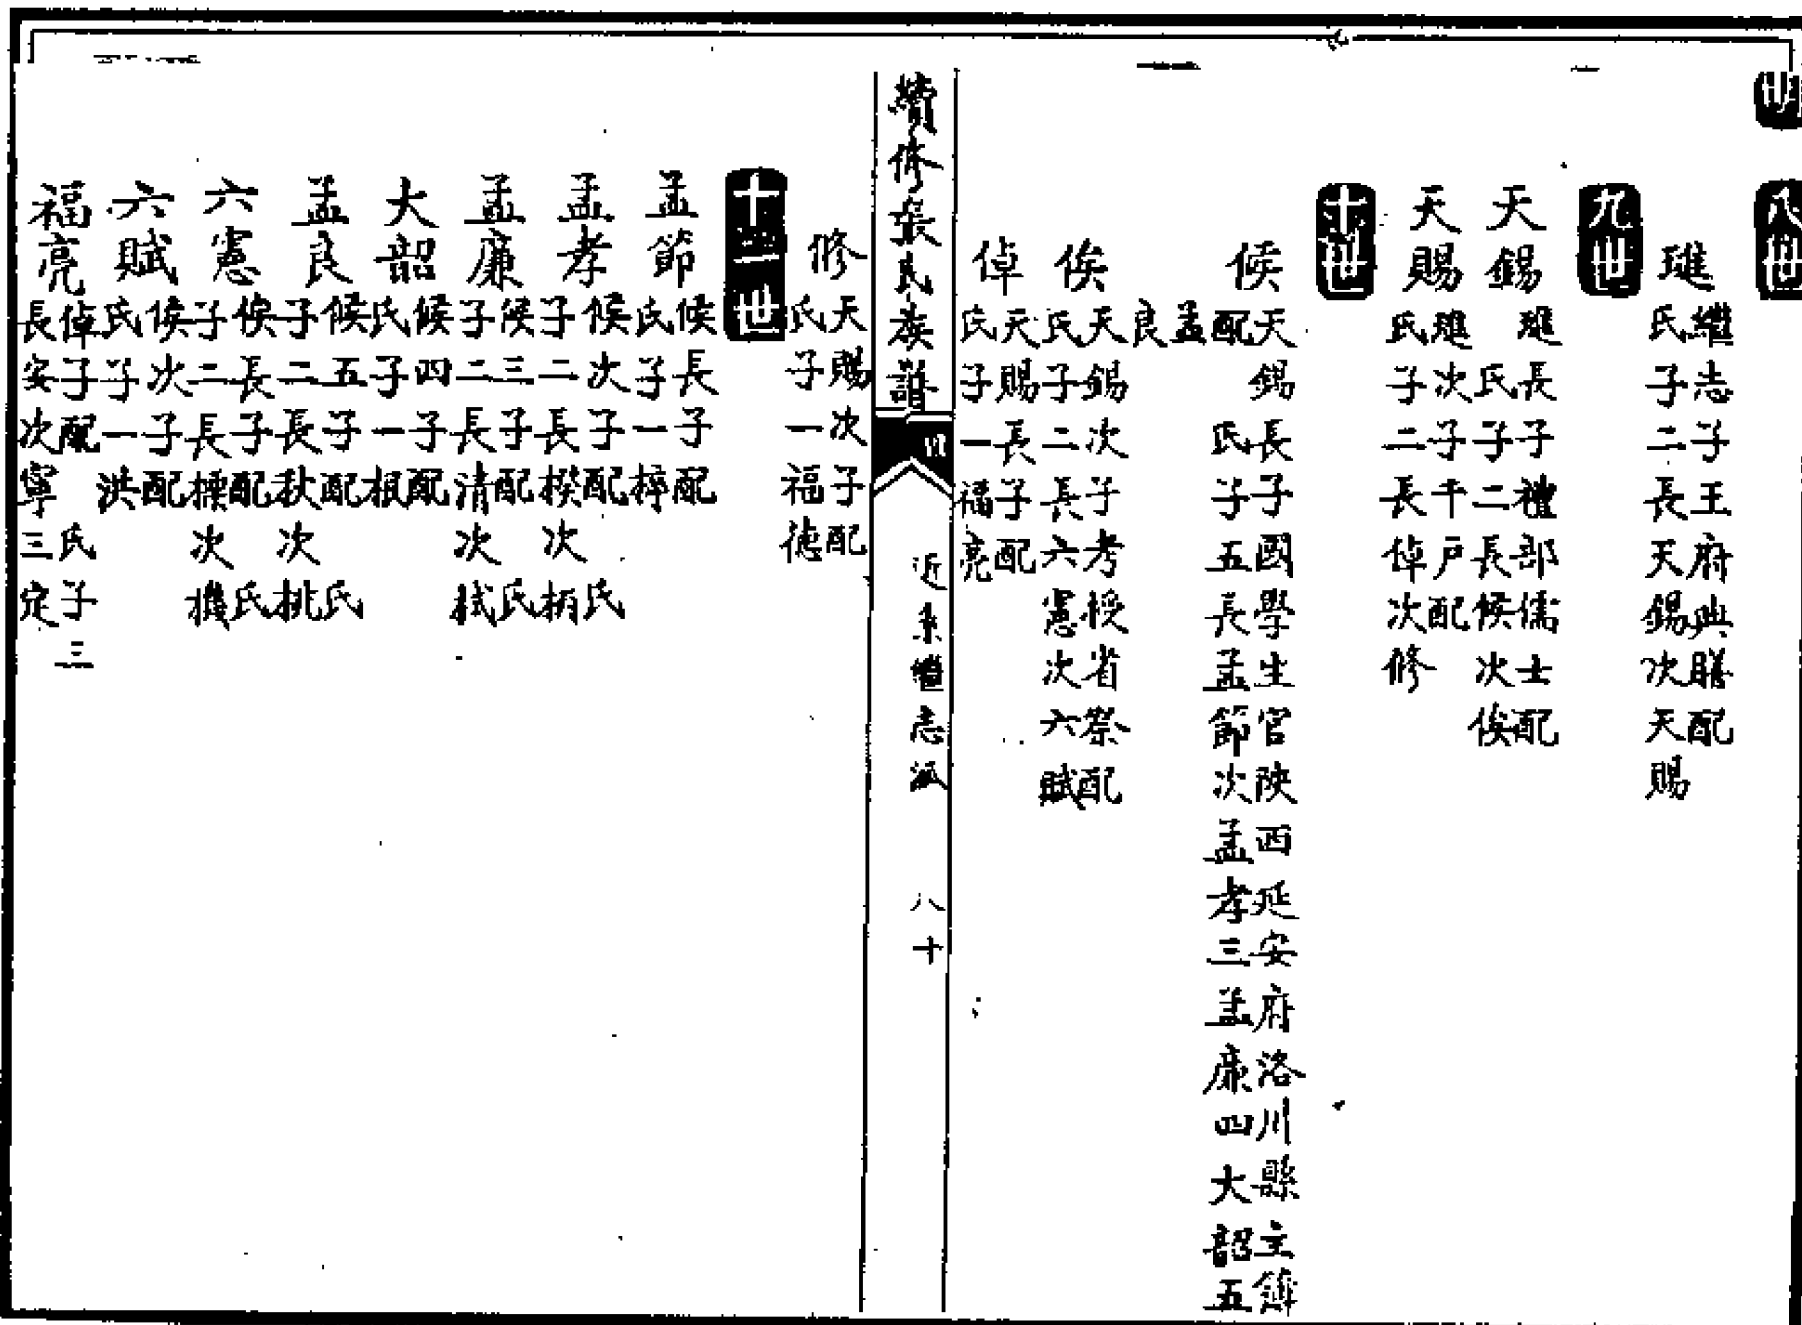 八世
璡
繼志子王府典膳配
氏子二長天錫次天賜
九世
天錫
璡長子禮部儒士配
氏子二長候次俟
天賜
璡次子千户配
氏子二長倬次修
十世
候
天錫長子國學生官陝西延安府洛川縣主簿
配 氏子五長孟節次孟孝三孟廉四大韶五
孟
良
俟
天錫次子考授省祭配
氏子二長六憲次六賦
倬
天賜長子配
氏子一福亮
續修張氏族譜
近系繼志派
八十
修
天賜次子配
氏子一福德
十一世
孟節
候長子配
氏子一梓
孟孝
候次子配 氏
子二長楑次柄
孟廉
候三子配 氏
子二長清次栻
大韶
候四子配
氏子一根
孟良
候五子配 氏
子二長狄次桃
六憲
俟長子配 氏
子二長標次機
六賦
俟次子配
氏子一洪
福亮
倬子配 氏子三
長安次寧三定